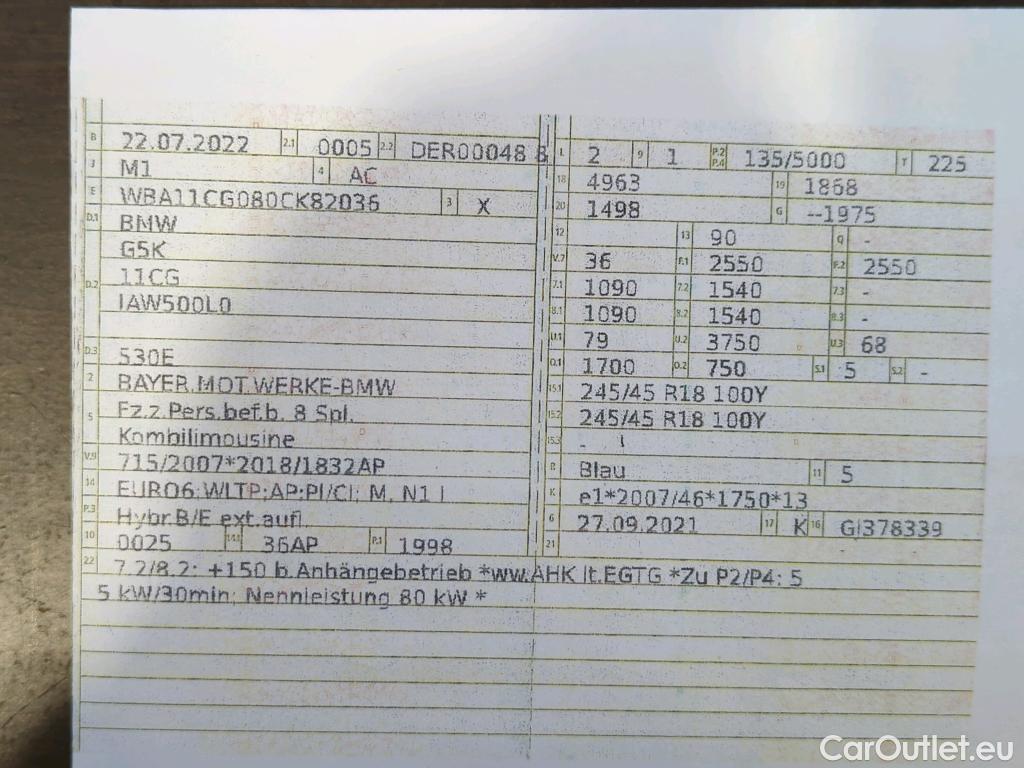 B 22.07.2022 2.1 0005 2.2 DER00048 8
J M1 4 AC
E WBA11CG080CK82036 3 X
D.1 BMW
G5K
D.2 11CG
IAW500L0
D.3 530E
2 BAYER.MOT.WERKE-BMW
5 Fz.z.Pers.bef.b. 8 Spl.
Kombilimousine
V.9 715/2007*2018/1832AP
14 EURO6;WLTP;AP;PI/CI; M, N1 I
P.3 Hybr.B/E ext.aufl.
10 0025 14.1 36AP P.1 1998
L 2 9 1 P.2 P.4 135/5000 T 225
18 4963 19 1868
20 1498 G --1975
12 13 90 Q -
V.7 36 F.1 2550 F.2 2550
7.1 1090 7.2 1540 7.3 -
8.1 1090 8.2 1540 8.3 -
U.1 79 U.2 3750 U.3 68
O.1 1700 O.2 750 S.1 5 S.2 -
15.1 245/45 R18 100Y
15.2 245/45 R18 100Y
15.3 -
R Blau 11 5
K e1*2007/46*1750*13
6 27.09.2021 17 K 16 GI378339
21
22 7.2/8.2: +150 b.Anhängebetrieb *ww.AHK lt.EGTG *Zu P2/P4: 5
5 kW/30min; Nennleistung 80 kW *
CarOutlet.eu